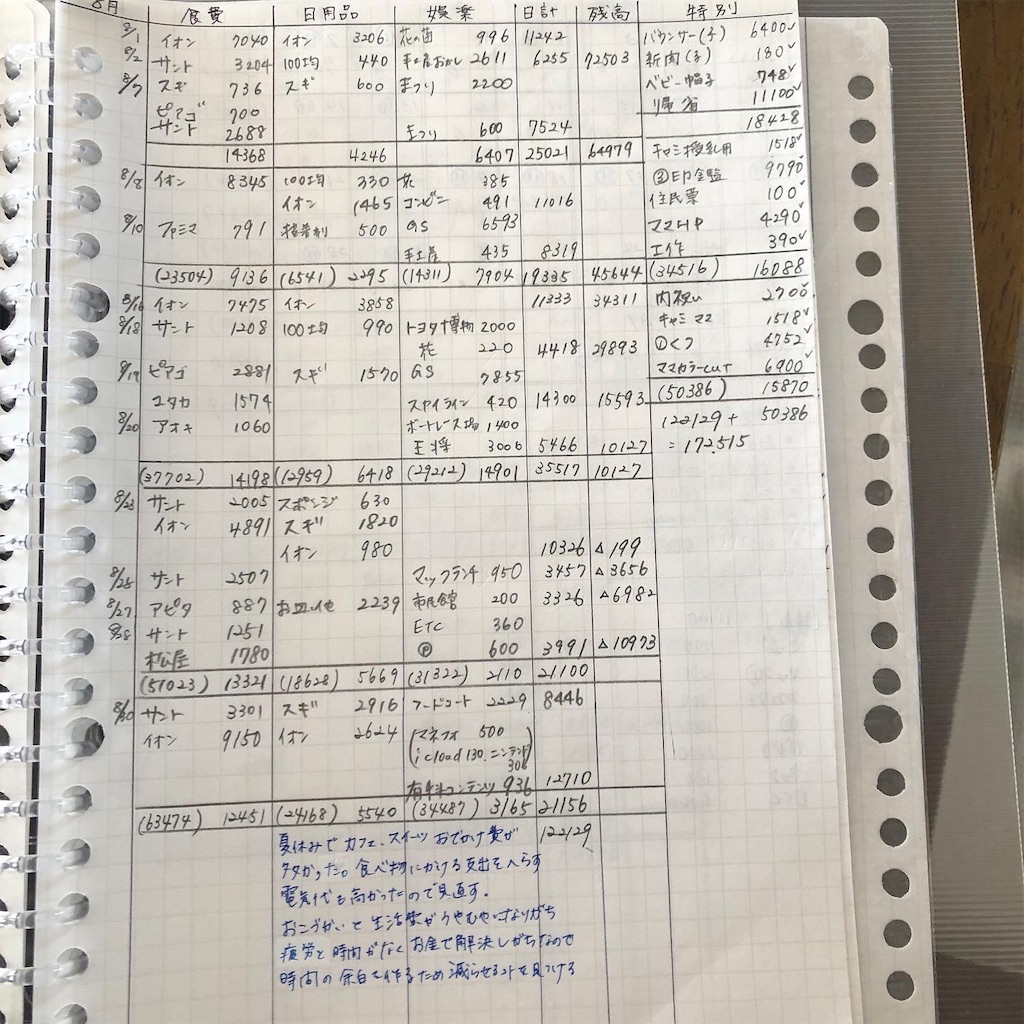 8月 食費 日用品 娯楽 日計 残高 特別
8/1 イオン 7040 イオン 3206 花の苗 996 11242 バウンサー(子) 6400✓
8/2 サント 3204 100均 440 手土産おかし 2611 6255 72503 新肉(子) 180✓
8/7 スギ 736 スギ 600 まつり 2200 ベビー帽子 748✓
ピアゴ 700 帰省 11100✓
サント 2688 まつり 600 7524 18428
14368 4246 6407 25021 64979 キャミ授乳用 1518✓
8/8 イオン 8345 100均 330 花 385 ②EP金監 9790✓
イオン 1465 コンビニ 491 11016 住民票 100✓
8/10 ファミマ 791 接着剤 500 GS 6593 ママHP 4290✓
手土産 435 8319 工作 390✓
(23504) 9136 (6541) 2295 (14311) 7904 19335 45644 (34516) 16088
8/16 イオン 7475 イオン 3858 11333 34311 内祝い 2700✓
8/18 サント 1208 100均 990 トヨタ博物 2000 キャミママ 1518✓
花 220 4418 29893 ①くつ 4752✓
8/19 ピアゴ 2881 スギ 1570 GS 7855 ママカラーcut 6900✓
ユタカ 1574 スカイライン 420 14300 15593 (50386) 15870
8/20 アオキ 1060 ボートレース場 1400 122129 + 50386
王将 3006 5466 10127 = 172515
(37702) 14198 (12959) 6418 (29212) 14901 35517 10127
8/23 サント 2005 スポンジ 630
イオン 4891 スギ 1820
イオン 980 10326 △199
8/25 サント 2507 マックランチ 950 3457 △3656
8/27 アピタ 887 お皿他 2239 市民館 200 3326 △6982
8/28 サント 1251 ETC 360
松屋 1780 Ⓟ 600 3991 △10973
(51023) 13321 (18628) 5669 (31322) 2110 21100
8/30 サント 3301 スギ 2916 フードコート 2229 8446
イオン 9150 イオン 2624 (マネフォ 500
icload 130. ニンテンド 306)
有料コンテンツ 936 12710
(63474) 12451 (24168) 5540 (34487) 3165 21156
122129
夏休みで カフェ、スイーツ おでかけ費が
多かった。食べ物にかける支出をへらす
電気代も高かったので見直す。
おこづかいと生活費がうやむやになりがち
疲労と時間がなくお金で解決しがちなので
時間の余白を作るため減らせるコトを見つける